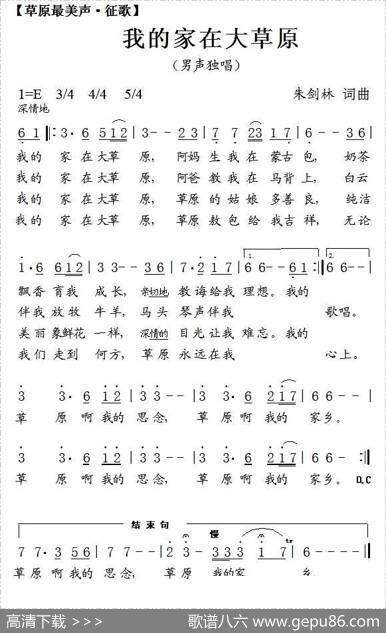 【草原最美声·征歌】
我的家在大草原
（男声独唱）
1=E 3/4 4/4 5/4
朱剑林 词曲
深情地
6 1 |: 3· 6 5 1 2 | 3 - - 2 3 | 7 7 2 3 1 7 | 6 - - 6 1 |
我的 家在大草 原，阿妈生我在蒙古包，奶茶
我的 家在大草 原，阿爸教我在马背上，白云
我的 家在大草 原，草原的姑娘多善良，纯洁
我的 家在大草 原，草原敖包给我吉祥，无论
1· 6 6 1 2 | 3 3 - - | 3 3 5 6 | 7· 2 1 7 | 6 6 - - 6 1 :| 6 6 - - |
飘香育我 成长，亲切地 教诲给我 理想。我的
伴我放牧 牛羊，马头 琴声伴我 歌唱。
美丽象鲜花 一样，深情的 目光让我 难忘。我的
我们走到 何方，草原 永远在我 心上。
3 3· 6 1 2 | 3 3 - - | 3 3· 6 2 1 7 | 6 6 - - |
草 原啊我的 思念，草 原啊我的 家乡。
3 3· 6 1 2 | 3 3 - - | 3 3· 6 2 1 7 | 6 6 - - :|
草 原啊我的 思念，草 原啊我的 家乡。D.C
结束句
慢
7 7· 3 5 6 | 7 7 - - | 2 3 - 3 3 3 1 7 | 6 - - - - ||
草原啊我的 思念，草原 我的家 乡
高清下载 >>>
歌谱八六 www.gepu86.com